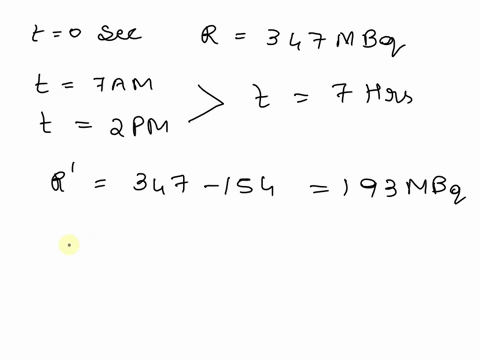 t = 0 Sec R = 347 MBq
t = 7 AM
t = 2 PM > t = 7 Hrs
R' = 347 - 154 = 193 MBq